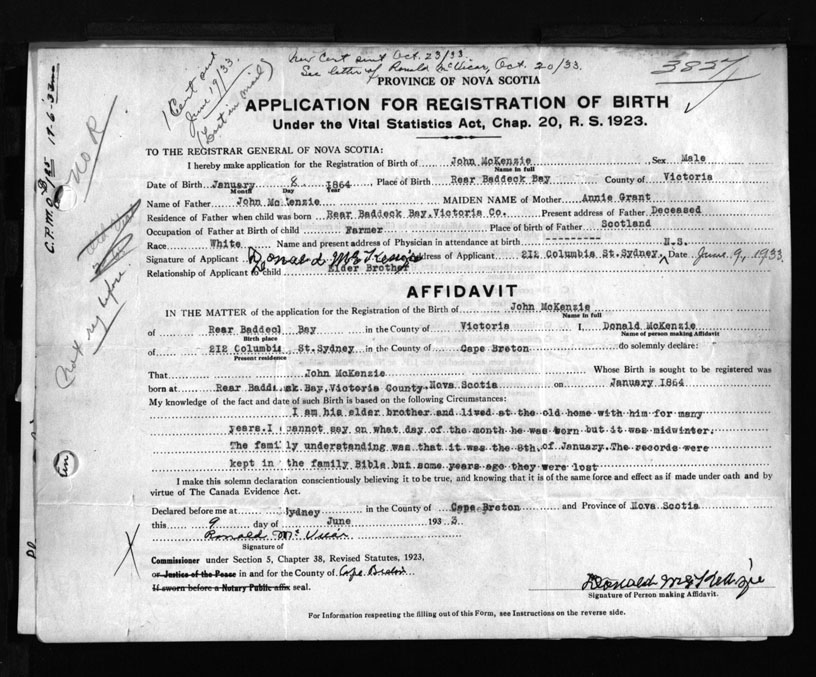 New Cert sent Oct. 23/33.
See letter of Ronald McVicar, Oct. 20/33.
(Cert sent
June 19/33.
(Lost in mail)
3827
PROVINCE OF NOVA SCOTIA
APPLICATION FOR REGISTRATION OF BIRTH
Under the Vital Statistics Act, Chap. 20, R. S. 1923.
TO THE REGISTRAR GENERAL OF NOVA SCOTIA:
I hereby make application for the Registration of Birth of John McKenzie Sex Male
Name in full
Date of Birth January 8 1864 Place of Birth Rear Baddeck Bay County of Victoria
Month Day Year
Name of Father John Mc enzie MAIDEN NAME of Mother Annie Grant
Residence of Father when child was born Rear Baddeck Bay, Victoria Co. Present address of Father Deceased
Occupation of Father at Birth of child Farmer Place of birth of Father Scotland
Race White Name and present address of Physician in attendance at birth ---------- N.S.
Signature of Applicant Donald McKenzie Address of Applicant 212 Columbia St. Sydney. Date June 9, 1933.
Relationship of Applicant to child Elder Brother
AFFIDAVIT
IN THE MATTER of the application for the Registration of the Birth of John McKenzie
Name in full
of Rear Baddeck Bay in the County of Victoria I, Donald McKenzie
Birth place Name of person making Affidavit
of 212 Columbia St. Sydney in the County of Cape Breton do solemnly declare:
Present residence
That John McKenzie Whose Birth is sought to be registered was
born at Rear Badd ck Bay, Victoria County, Nova Scotia on January 1864
My knowledge of the fact and date of such Birth is based on the following Circumstances:
I am his elder brother and lived at the old home with him for many
years. I cannot say on what day of the month he was born but it was midwinter.
The family understanding was that it was the 8th. of January. The records were
kept in the family Bible but some years ago they were lost
I make this solemn declaration conscientiously believing it to be true, and knowing that it is of the same force and effect as if made under oath and by
virtue of The Canada Evidence Act.
Declared before me at Sydney in the County of Cape Breton and Province of Nova Scotia
this 9 day of June 1933.
Ronald McVicar
Signature of
Commissioner under Section 5, Chapter 38, Revised Statutes, 1923,
or Justice of the Peace in and for the County of Cape Breton
If sworn before a Notary Public affix seal.
Donald McKenzie
Signature of Person making Affidavit.
For Information respecting the filling out of this Form, see Instructions on the reverse side.
C.P.M.O. 19-6-33
M O R
Not reg before